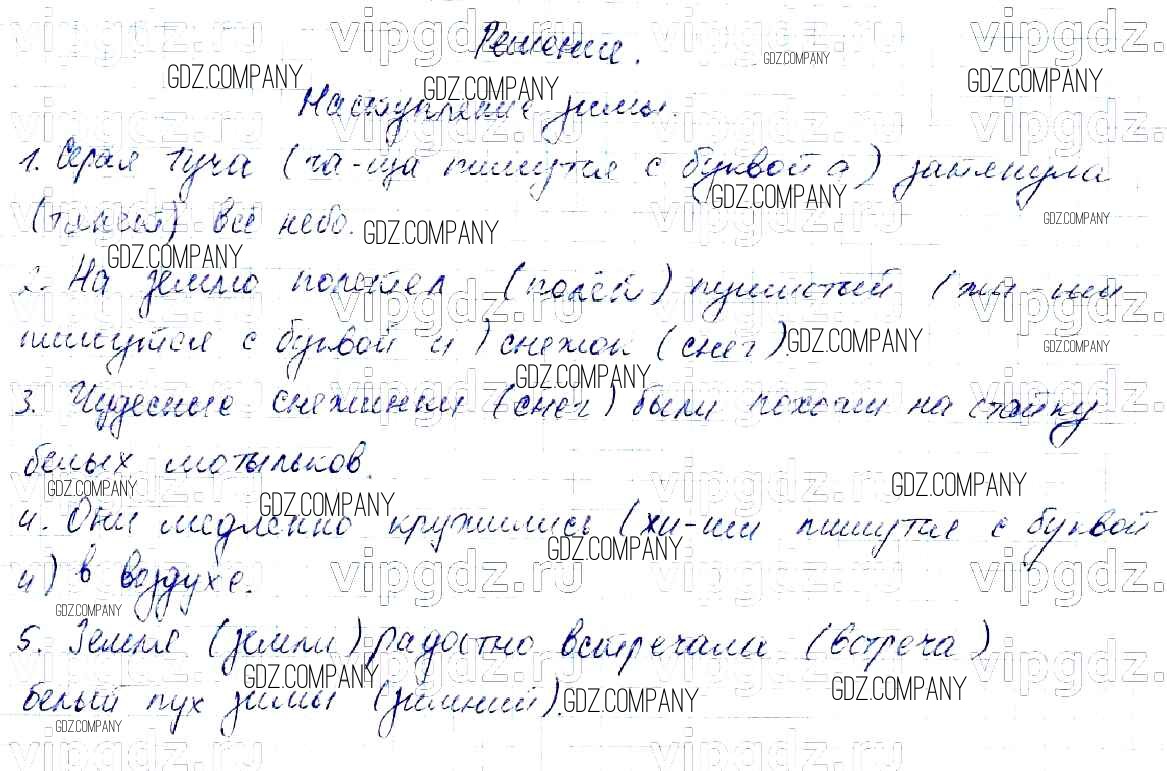 Решение.
Наступление зимы.
1. Серая туча (ча-ща пишутся с буквой а) затянула
(тянет) всё небо.
2. На землю полетел (полёт) пушистый (жи-ши
пишутся с буквой и) снежок (снег).
3. Чудесные снежинки (снег) были похожи на стайку
белых мотыльков.
4. Они медленно кружились (жи-ши пишутся с буквой
и) в воздухе.
5. Земля (земли) радостно встречала (встреча)
белый пух зимы (зимний).
vipgdz.ru
GDZ.COMPANY